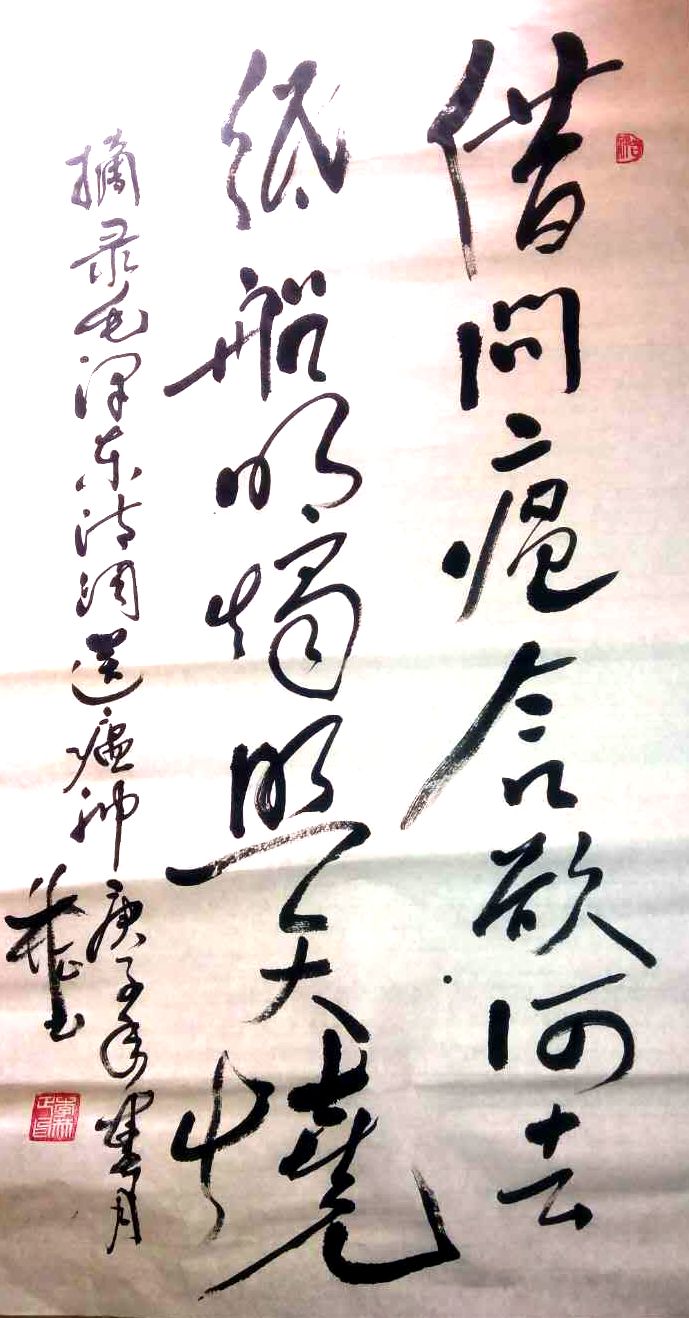 借问瘟君欲何去
纸船明烛照天烧
摘录毛泽东诗词送瘟神庚子年月